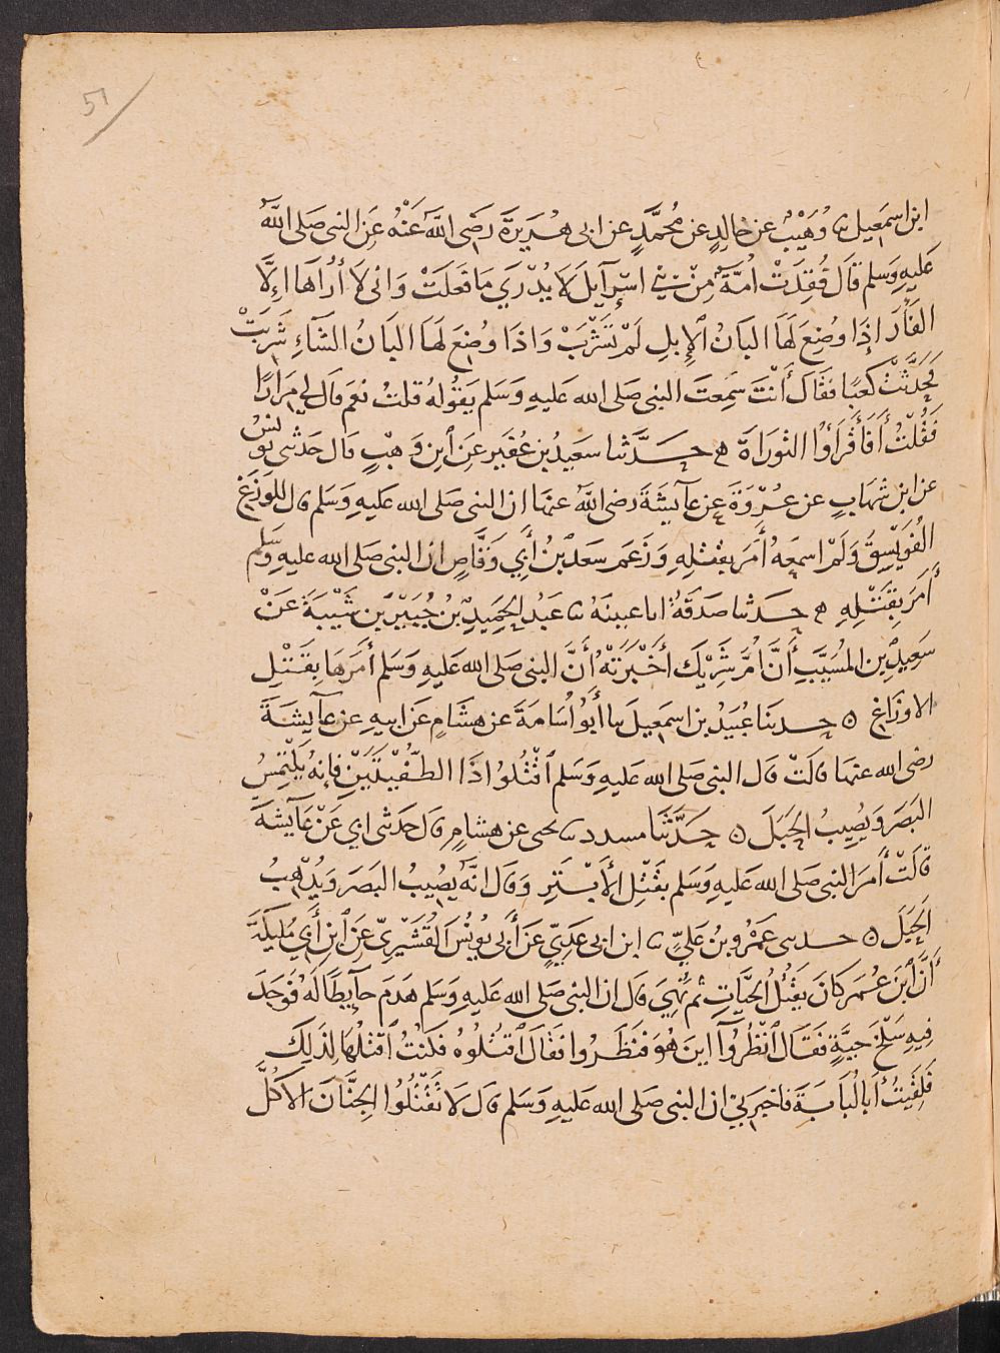 ٤
51
ابن اسمعيل ثنا وُهَيْبٌ عن خالدٍ عن مُحمَّدٍ عن ابى هُرَيرَةَ رَضى اللَّه عَنْهُ عَنِ النبى صَلى اللَّه
عَليهِ وَسلم قال فُقِدَتْ اُمَّةٌ مِنْ بَنِي اسْرآيلَ لَا يُدْرَي مَا فَعَلَتْ وَانى لَا أُرَاهَا اِلَّا
الفَأْرَ اِذَا وضِعَ لَهَا البَانُ الْاِبلِ لَمْ تَشْرَبْ وَاذَا وضِعَ لَهَا البَانُ الشَّاءِ شَرِبَتْ
فَحَدَّثْتُ كَعبًا فقَالَ أَنْتَ سَمِعتَ النبى صَلى الله عَليهِ وَسَلم يَقُولهُ قلتُ نعَم قال لي مِرَارًا
فَقُلْتُ أَفَأَقْرَأُ التَّورَاةَ ه حَدَّثنا سعَيدُ بن عُفَيرٍ عَنِ ابنِ وَهْبٍ قال حَدثنى يونسُ
عن ابن شهَابٍ عن عُرْوَةَ عن عآيشَةَ رضى اللَّهُ عنهَا ان النبى صَلى الله عَليهِ وَسَلم قال للوَزغ
الفُوَيْسِقُ وَلَمْ اسمَعْهُ أَمَرَ بقَتْلِهِ وَزَعَمَ سَعدُ بْنُ أَبي وَقَّاصٍ ان النبى صَلى الله عليهِ وسَلم
أَمَرَ بِقَتْلِهِ ه حَدثنا صدَقَةُ انا عيينه ثنا عَبدُ الحَمِيدِ بْنُ جُبَيْرِ بن شَيْبَةَ عَنْ
سَعِيدِ بنِ المُسَيَّبِ أَنَّ اُمَّ شَرِيْكٍ أَخْبَرَتْهُ أَنَّ النبى صَلى الله عَليهِ وَسَلم أَمَرَهَا بِقَتْلِ
الاوزَاغِ ه حَدثنَا عُبَيْدُ بن اسمَعيلَ ثنا أَبُو اُسَامَةَ عن هشَامٍ عَن ابيهِ عن عآيشَةَ
رضى الله عنهَا قالَتْ قال النبى صَلى الله عَليهِ وَسَلم اقْتُلُوا ذَا الطُّفْيَتَيْنِ فإنهُ يَلْتَمِسُ
البَصَرَ وَيُصِيبُ الحَبَلَ ه حَدَّثنَا مسدد ثنا يحيى عن هشَامٍ قال حَدثنى ابي عَنْ عَآيشَةَ
قالَتْ أَمَرَ النبى صَلى الله عَليهِ وَسَلم بقَتْلِ الأَبْتَرِ وَقال انَّهُ يُصِيبُ البَصَرَ وَيُذْهِبُ
الحَبَلَ ه حدثنى عَمْرُو بنُ عَليٍّ ثنا ابن ابى عَدِيٍّ عَن أَبى يُونُسَ القُشَيْرِيِّ عَنِ ابنِ أَبي مُلَيكَةَ
أَنَّ ابْنَ عُمَر كانَ يَقْتُلُ الحَيَّاتِ ثم نُهِيَ قال ان النبى صَلى الله عَليهِ وَسَلم هَدَمَ حآيطًا لَهُ فَوَجَدَ
فِيهِ سَلْخَ حَيَّةٍ فقَالَ انْظُرُوا اينَ هُوَ فنَظَرُوا فقَالَ اقتُلُوهُ فكُنْتُ اقتُلُهَا لِذَلِكَ
فَلقِيتُ أَبَا لُبَابَةَ فاخبرَني ان النبى صَلى الله عَليهِ وَسَلم قال لَا تَقْتُلُوا الجِنَّانَ الا كُلَّ